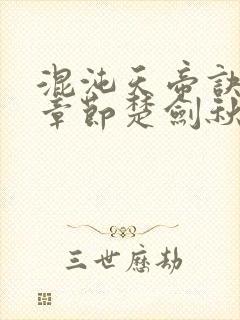 混沌天帝訣
章節楚劍秋
三世歷劫